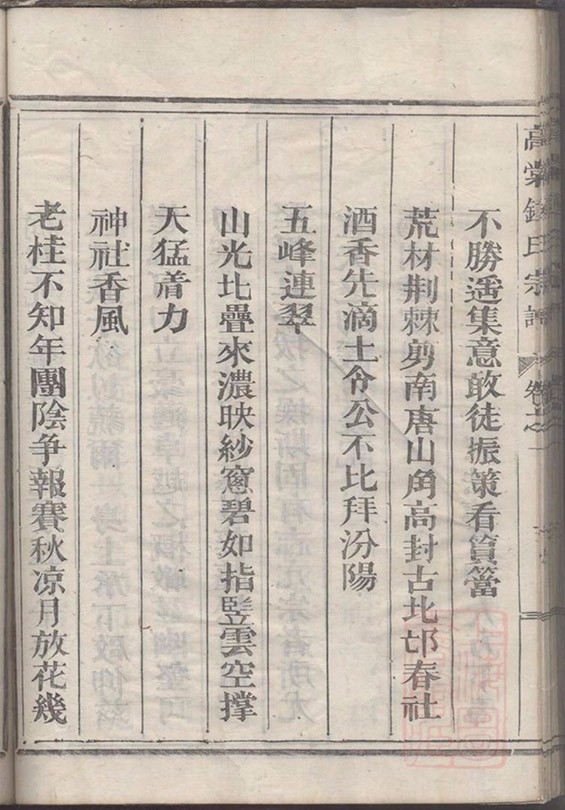 不勝遥集意敢徒振策看篔簹
荒材荆棘剪南唐山角高封古北邙春社
酒香先滴土令公不比拜汾陽
五峰連翠
山光比疊來濃映紗窻碧如指竪雲空撑
天猛着力
神社香風
老桂不知年團陰争報賽秋凉月放花幾
氏宗譜
卷之